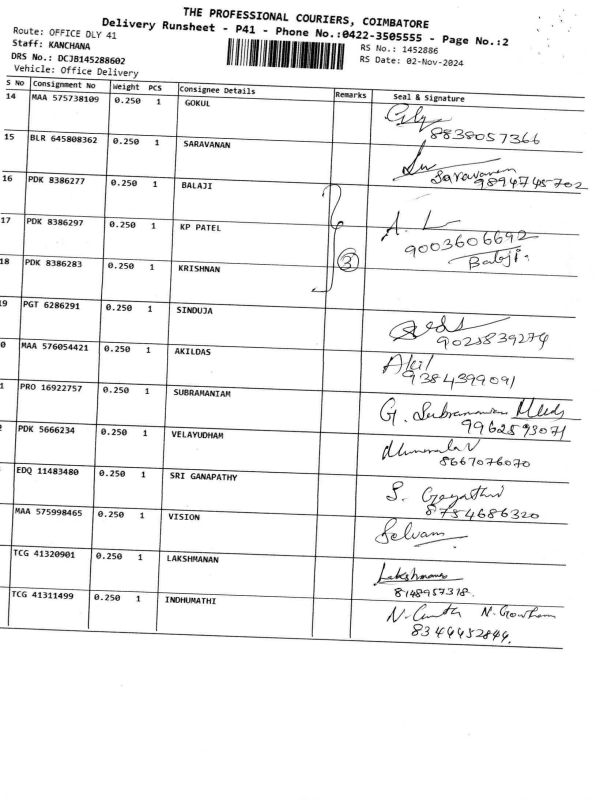 THE PROFESSIONAL COURIERS, COIMBATORE
Delivery Runsheet - P41 - Phone No.:0422-3505555 - Page No.:2
Route: OFFICE DLY 41
Staff: KANCHANA
RS No.: 1452886
DRS No.: DCJB145288602
RS Date: 02-Nov-2024
Vehicle: Office Delivery
S No Consignment No Weight PCS Consignee Details Remarks Seal & Signature
14 MAA 575738109 0.250 1 GOKUL
8838057366
15 BLR 645808362 0.250 1 SARAVANAN
Saravanan
9894745702
16 PDK 8386277 0.250 1 BALAJI
17 PDK 8386297 0.250 1 KP PATEL A. L
9003606692
18 PDK 8386283 0.250 1 KRISHNAN 3 Balaji.
19 PGT 6286291 0.250 1 SINDUJA
9025839274
0 MAA 576054421 0.250 1 AKILDAS Akil
9384399091
1 PRO 16922757 0.250 1 SUBRAMANIAM G. Subramanian
9962593071
2 PDK 5666234 0.250 1 VELAYUDHAM
8667076070
EDQ 11483480 0.250 1 SRI GANAPATHY S. Gayathri
8754686320
MAA 575998465 0.250 1 VISION Selvam
TCG 41320901 0.250 1 LAKSHMANAN Lakshmanan
8148957318.
TCG 41311499 0.250 1 INDHUMATHI N. Gowtham
8344452844.